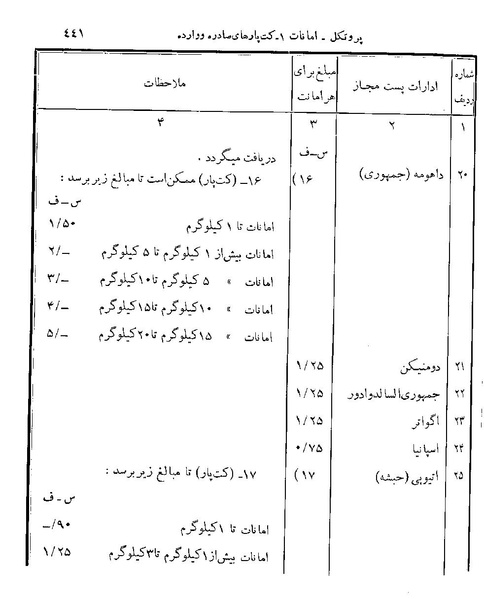 پروتکل - امانات ۱-کت‌پارهای صادره و وارده ۴۴۱
شماره ردیف ادارات پست مجاز مبلغ برای هر امانت ملاحظات
۱ ۲ ۳ ۴
س-ف
دریافت میگردد .
۲۰ داهومه (جمهوری) ۱۶) ۱۶- (کت‌پار) ممکن است تا مبالغ زیر برسد :
س-ف
امانات تا ۱ کیلوگرم ۱/۵۰
امانات بیش از ۱ کیلوگرم تا ۵ کیلوگرم ۲/-
امانات » ۵ کیلوگرم تا ۱۰ کیلوگرم ۳/-
امانات » ۱۰ کیلوگرم تا ۱۵ کیلوگرم ۴/-
امانات » ۱۵ کیلوگرم تا ۲۰ کیلوگرم ۵/-
۲۱ دومنیکن ۱/۲۵
۲۲ جمهوری السالدوادور ۱/۲۵
۲۳ اگواتر ۱/۲۵
۲۴ اسپانیا ۰/۷۵
۲۵ اتیوپی (حبشه) ۱۷) ۱۷- (کت‌پار) تا مبالغ زیر برسد :
س-ف
امانات تا ۱ کیلوگرم -/۹۰
امانات بیش از ۱ کیلوگرم تا ۳ کیلوگرم ۱/۲۵